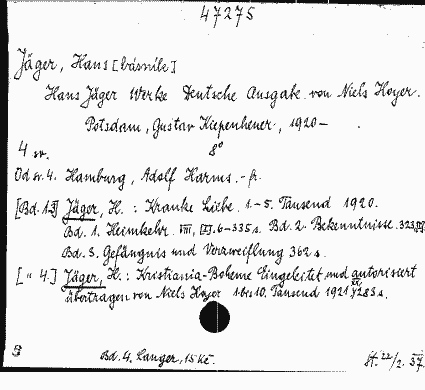 47275
Jäger, Hans [básníle]
Hans Jäger Werke Deutsche Ausgabe von Niels Hoyer.
Potsdam, Gustav Kiepenheuer, 1920-
4 sv. 8°
Od sv. 4. Hamburg, Adolf Harms. - fr.
[Bd. 1-3] Jäger, H. : Kranke Liebe. 1.-5. Tausend 1920.
Bd. 1. Heimkehr. VIII, 6-335 s. Bd. 2. Bekenntnisse. 323,
Bd. 3. Gefängnis und Verzweiflung 362 s.
[" 4.] Jäger, H. : Kristiania-Boheme Eingeleitet und autorisiert
übertragen von Niels Hoyer 1. bis 10. Tausend 1921 283 s.
Bd. 4. Langer, 15 Kč. 22/2. 37.